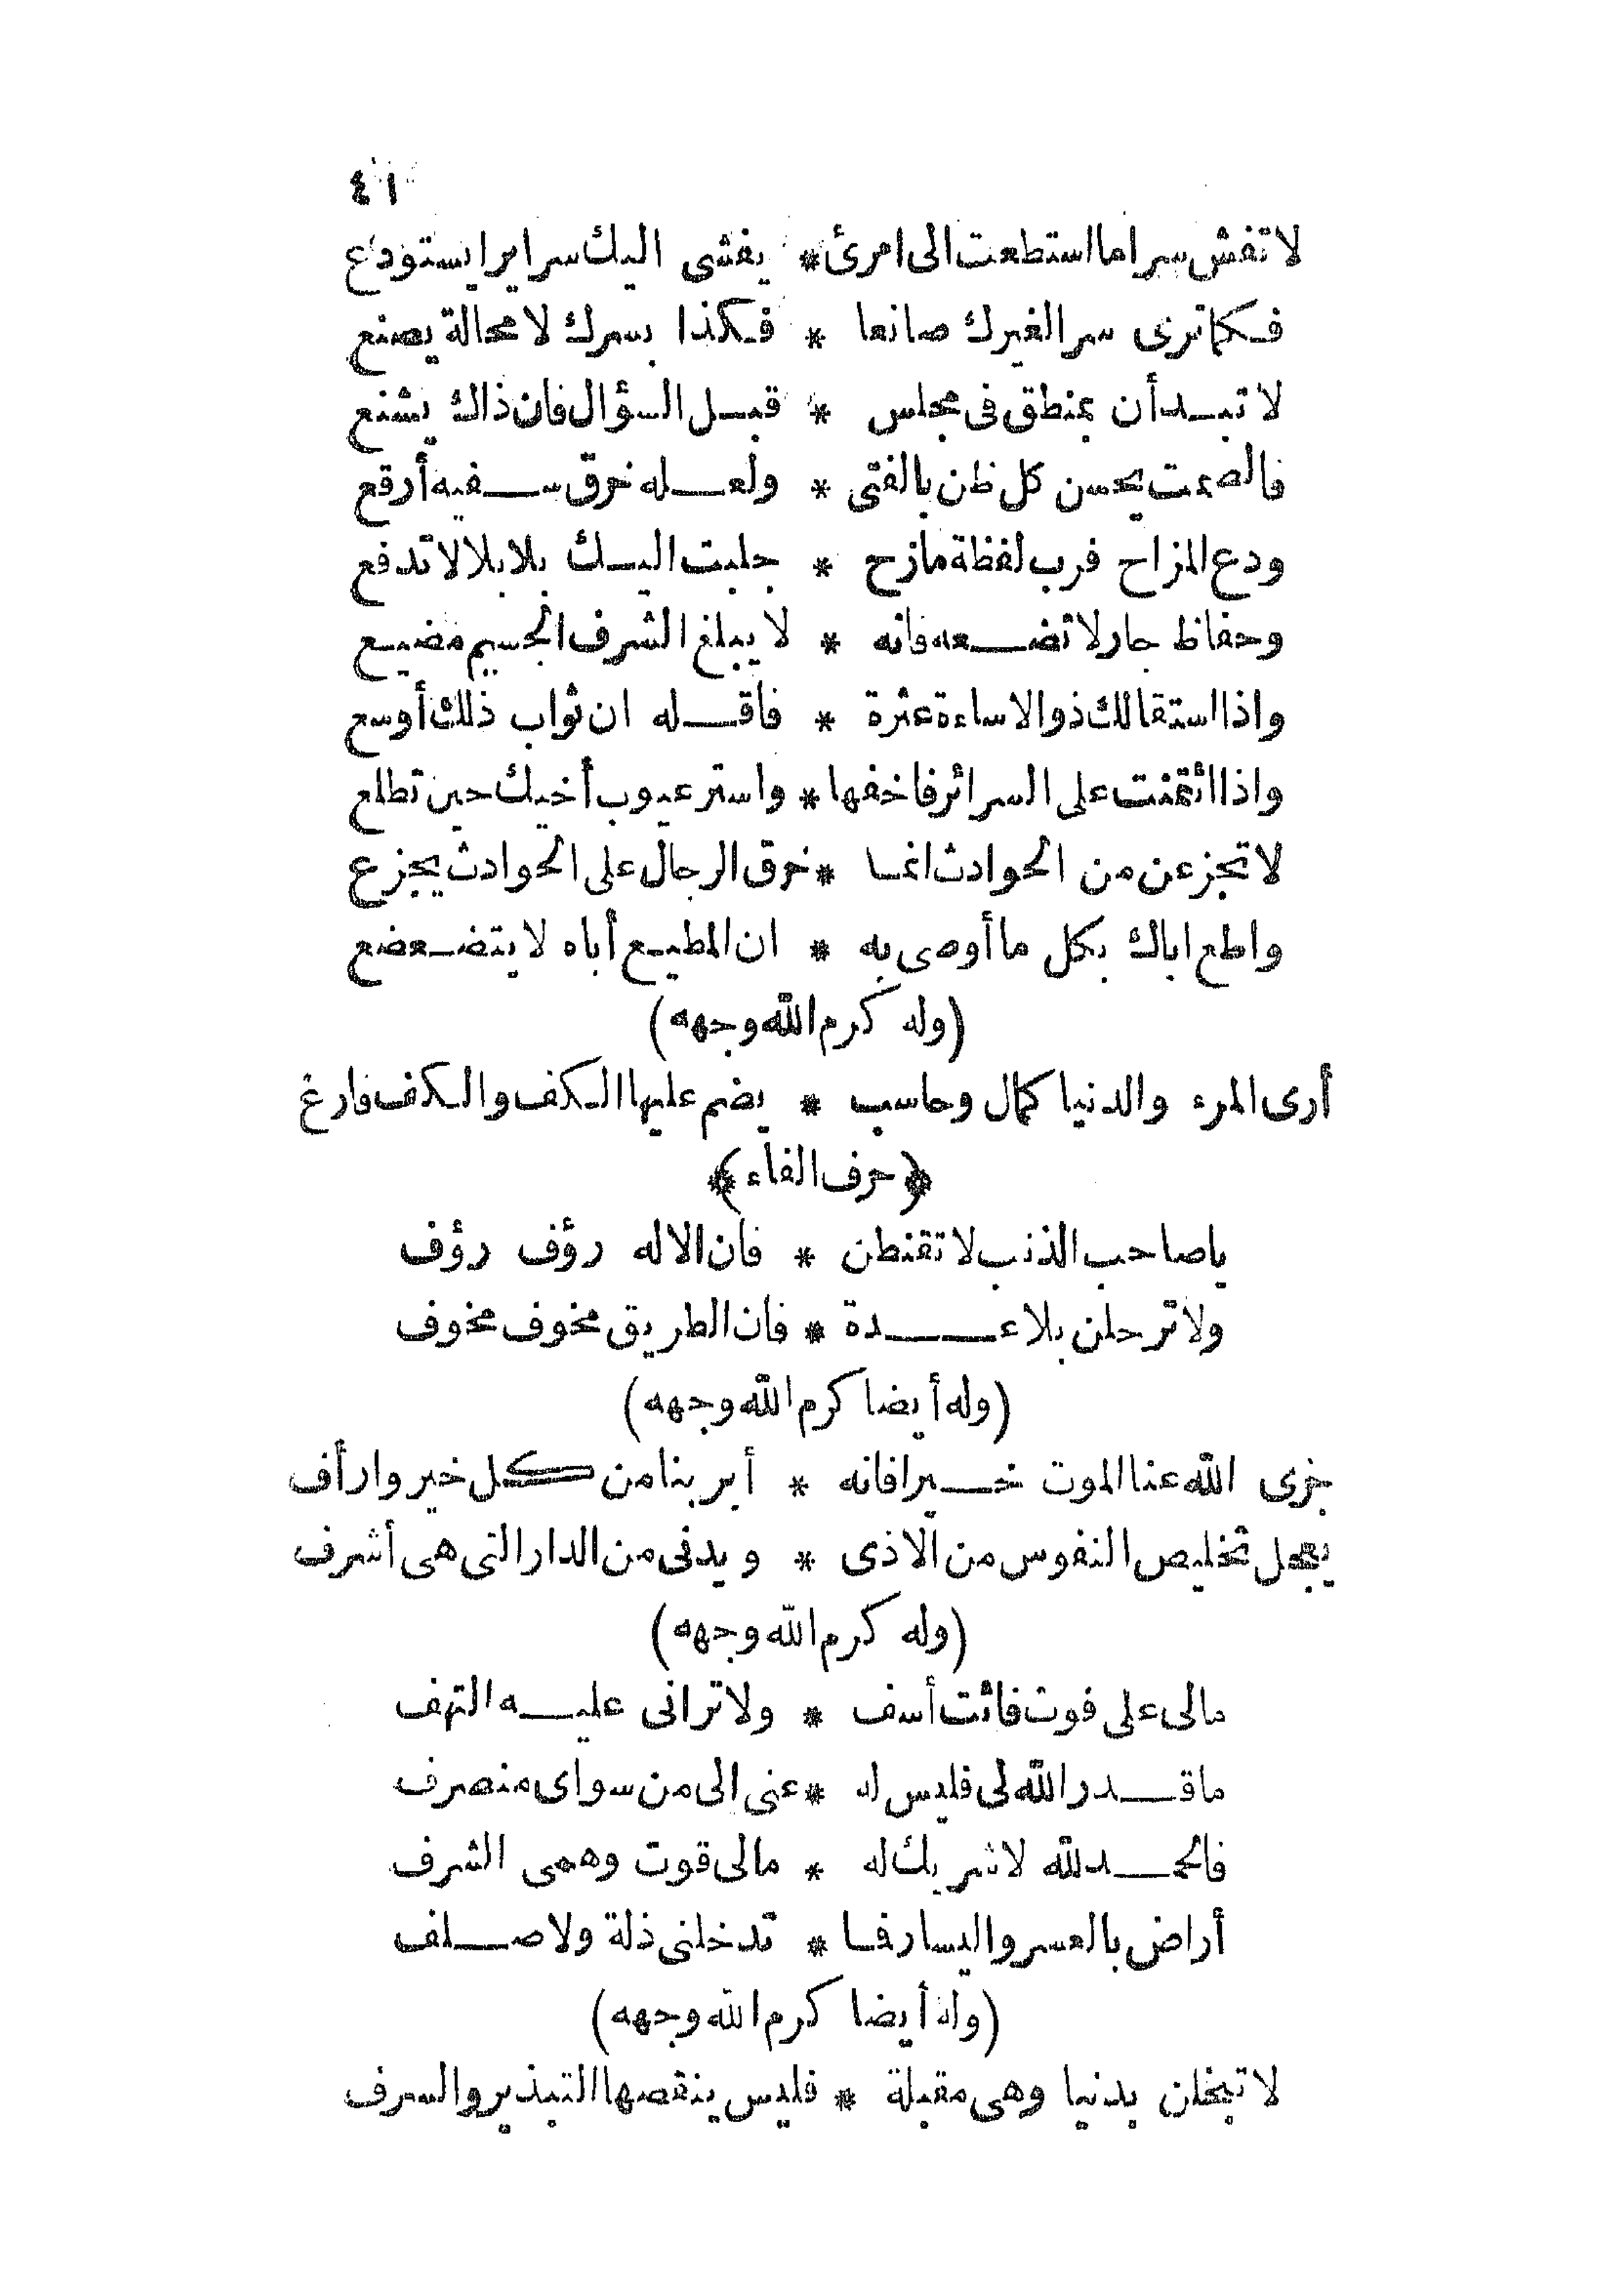 ٤١
لا تفش سرا ما استطعت الى امرئ * يفشى اليك سرايرا يستودع
فكما ترى سر الغيرك صانعا * فكذا بسرك لا محالة يصنع
لا تبدأن بمنطق فى مجلس * قبل السؤال فان ذاك يشنع
فالصمت يحسن كل ظن بالفتى * ولعله خرق سفيه أرقع
ودع المزاح فرب لفظة مازح * جلبت اليك بلابلا لا تدفع
وحفاظ جار لا تضعه فانه * لا يبلغ الشرف الجسيم مضيع
واذا استقالك ذو الاساءة عثرة * فاقله ان ثواب ذلك أوسع
واذا ائتمنت على السرائر فاخفها * واستر عيوب أخيك حين تطلع
لا تجزعن من الحوادث انما * خرق الرجال على الحوادث يجزع
واطع اباك بكل ما أوصى به * ان المطيع أباه لا يتضعضع
(وله كرم الله وجهه)
أرى المرء والدنيا كمال وحاسب * يضم عليها الكف والكف فارغ
﴿حرف الفاء﴾
يا صاحب الذنب لا تقنطن * فان الاله رؤف رؤف
ولا ترحلن بلا عدة * فان الطريق مخوف مخوف
(وله أيضا كرم الله وجهه)
جزى الله عنا الموت خيرا فانه * أبر بنا من كل خير وارأف
يعجل تخليص النفوس من الاذى * ويدنى من الدار التى هى أشرف
(وله كرم الله وجهه)
مالى على فوت فائت أسف * ولا ترانى عليه التهف
ما قدر الله لى فليس له * عنى الى من سواى منصرف
فالحمد لله لا شريك له * مالى قوت وهمى الشرف
أراض بالعسر واليسار فا * تدخلنى ذلة ولا صلف
(وله أيضا كرم الله وجهه)
لا تبخلن بدنيا وهى مقبلة * فليس ينقصها التبذير والسرف